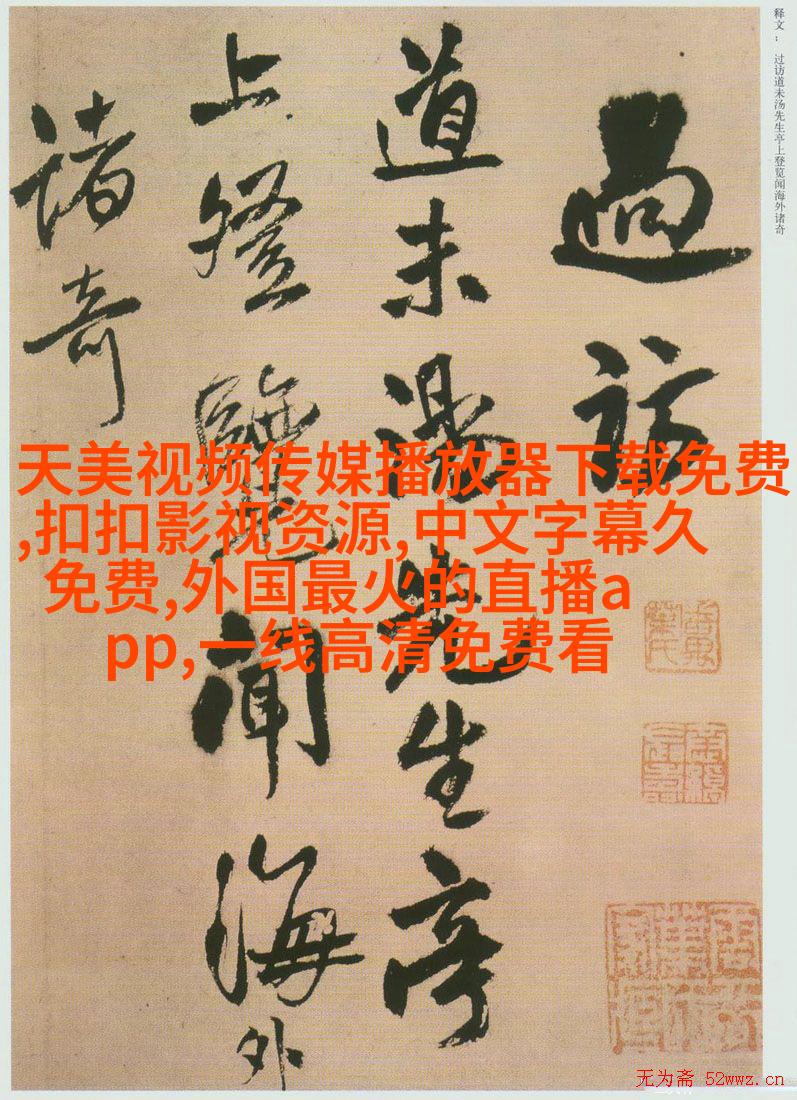 释文： 过访道未汤先生亭上登览闻海外诸奇
過訪
道未湯先生亭
上登覽聞海外
諸奇
天美视频传媒播放器下载免费
,扣扣影视资源,中文字幕久
免费,外国最火的直播a
pp,一线高清免费看
无为斋 52wwz.cn